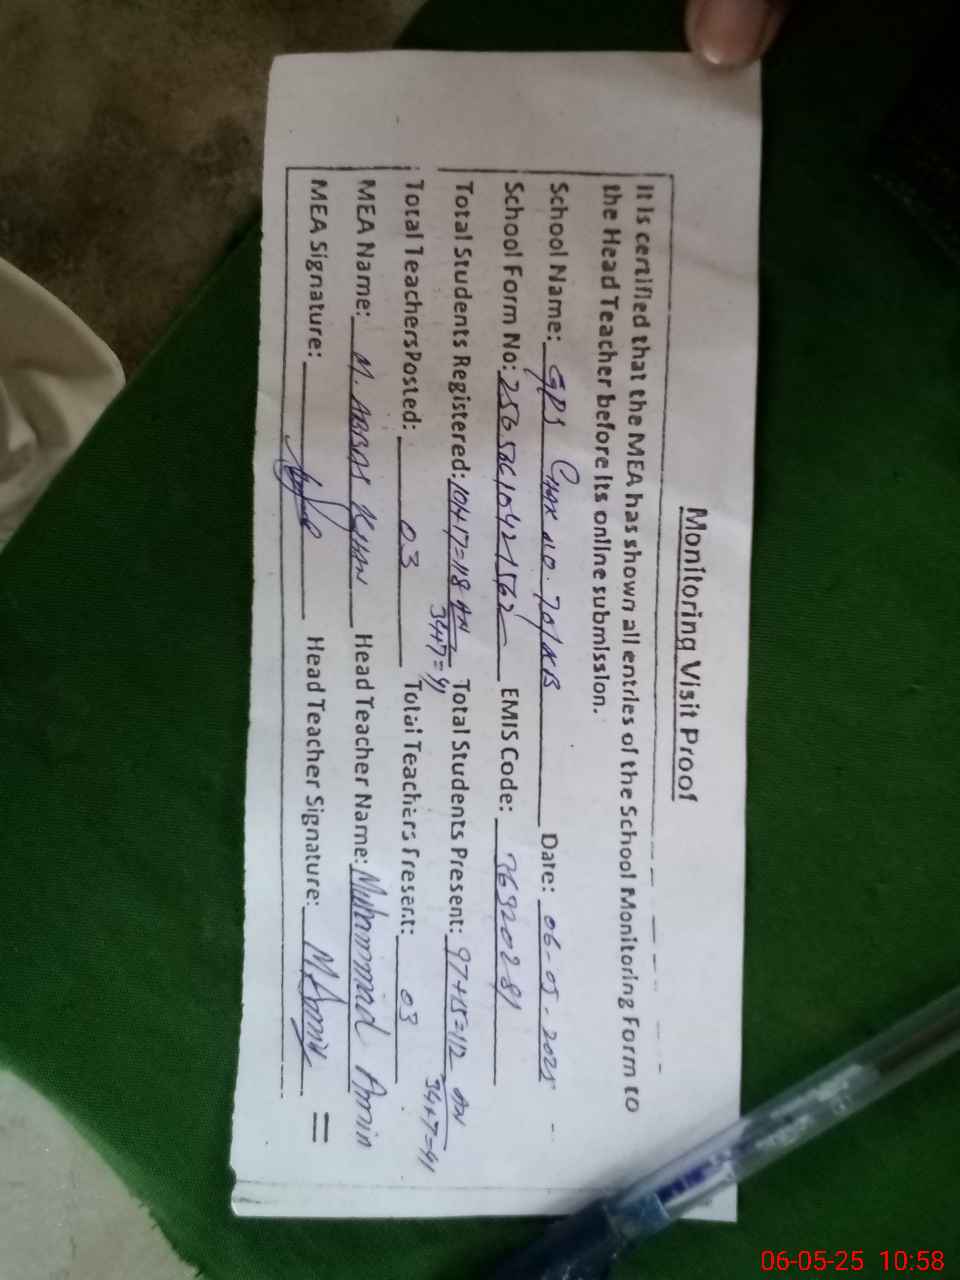 Monitoring Visit Proof
It is certified that the MEA has shown all entries of the School Monitoring Form to
the Head Teacher before its online submission.
School Name: GPS Chak No. 70/KB Date: 06-05-2025
School Form No: EMIS Code:
Total Students Registered: Total Students Present: 97+15=112 AN
34+7=41 34+7=41
Total Teachers Posted: 03 Total Teachers Present: 03
MEA Name: M. ABBAS KHAN Head Teacher Name: Muhammad Amin
MEA Signature: Head Teacher Signature: M Amin
06-05-25 10:58